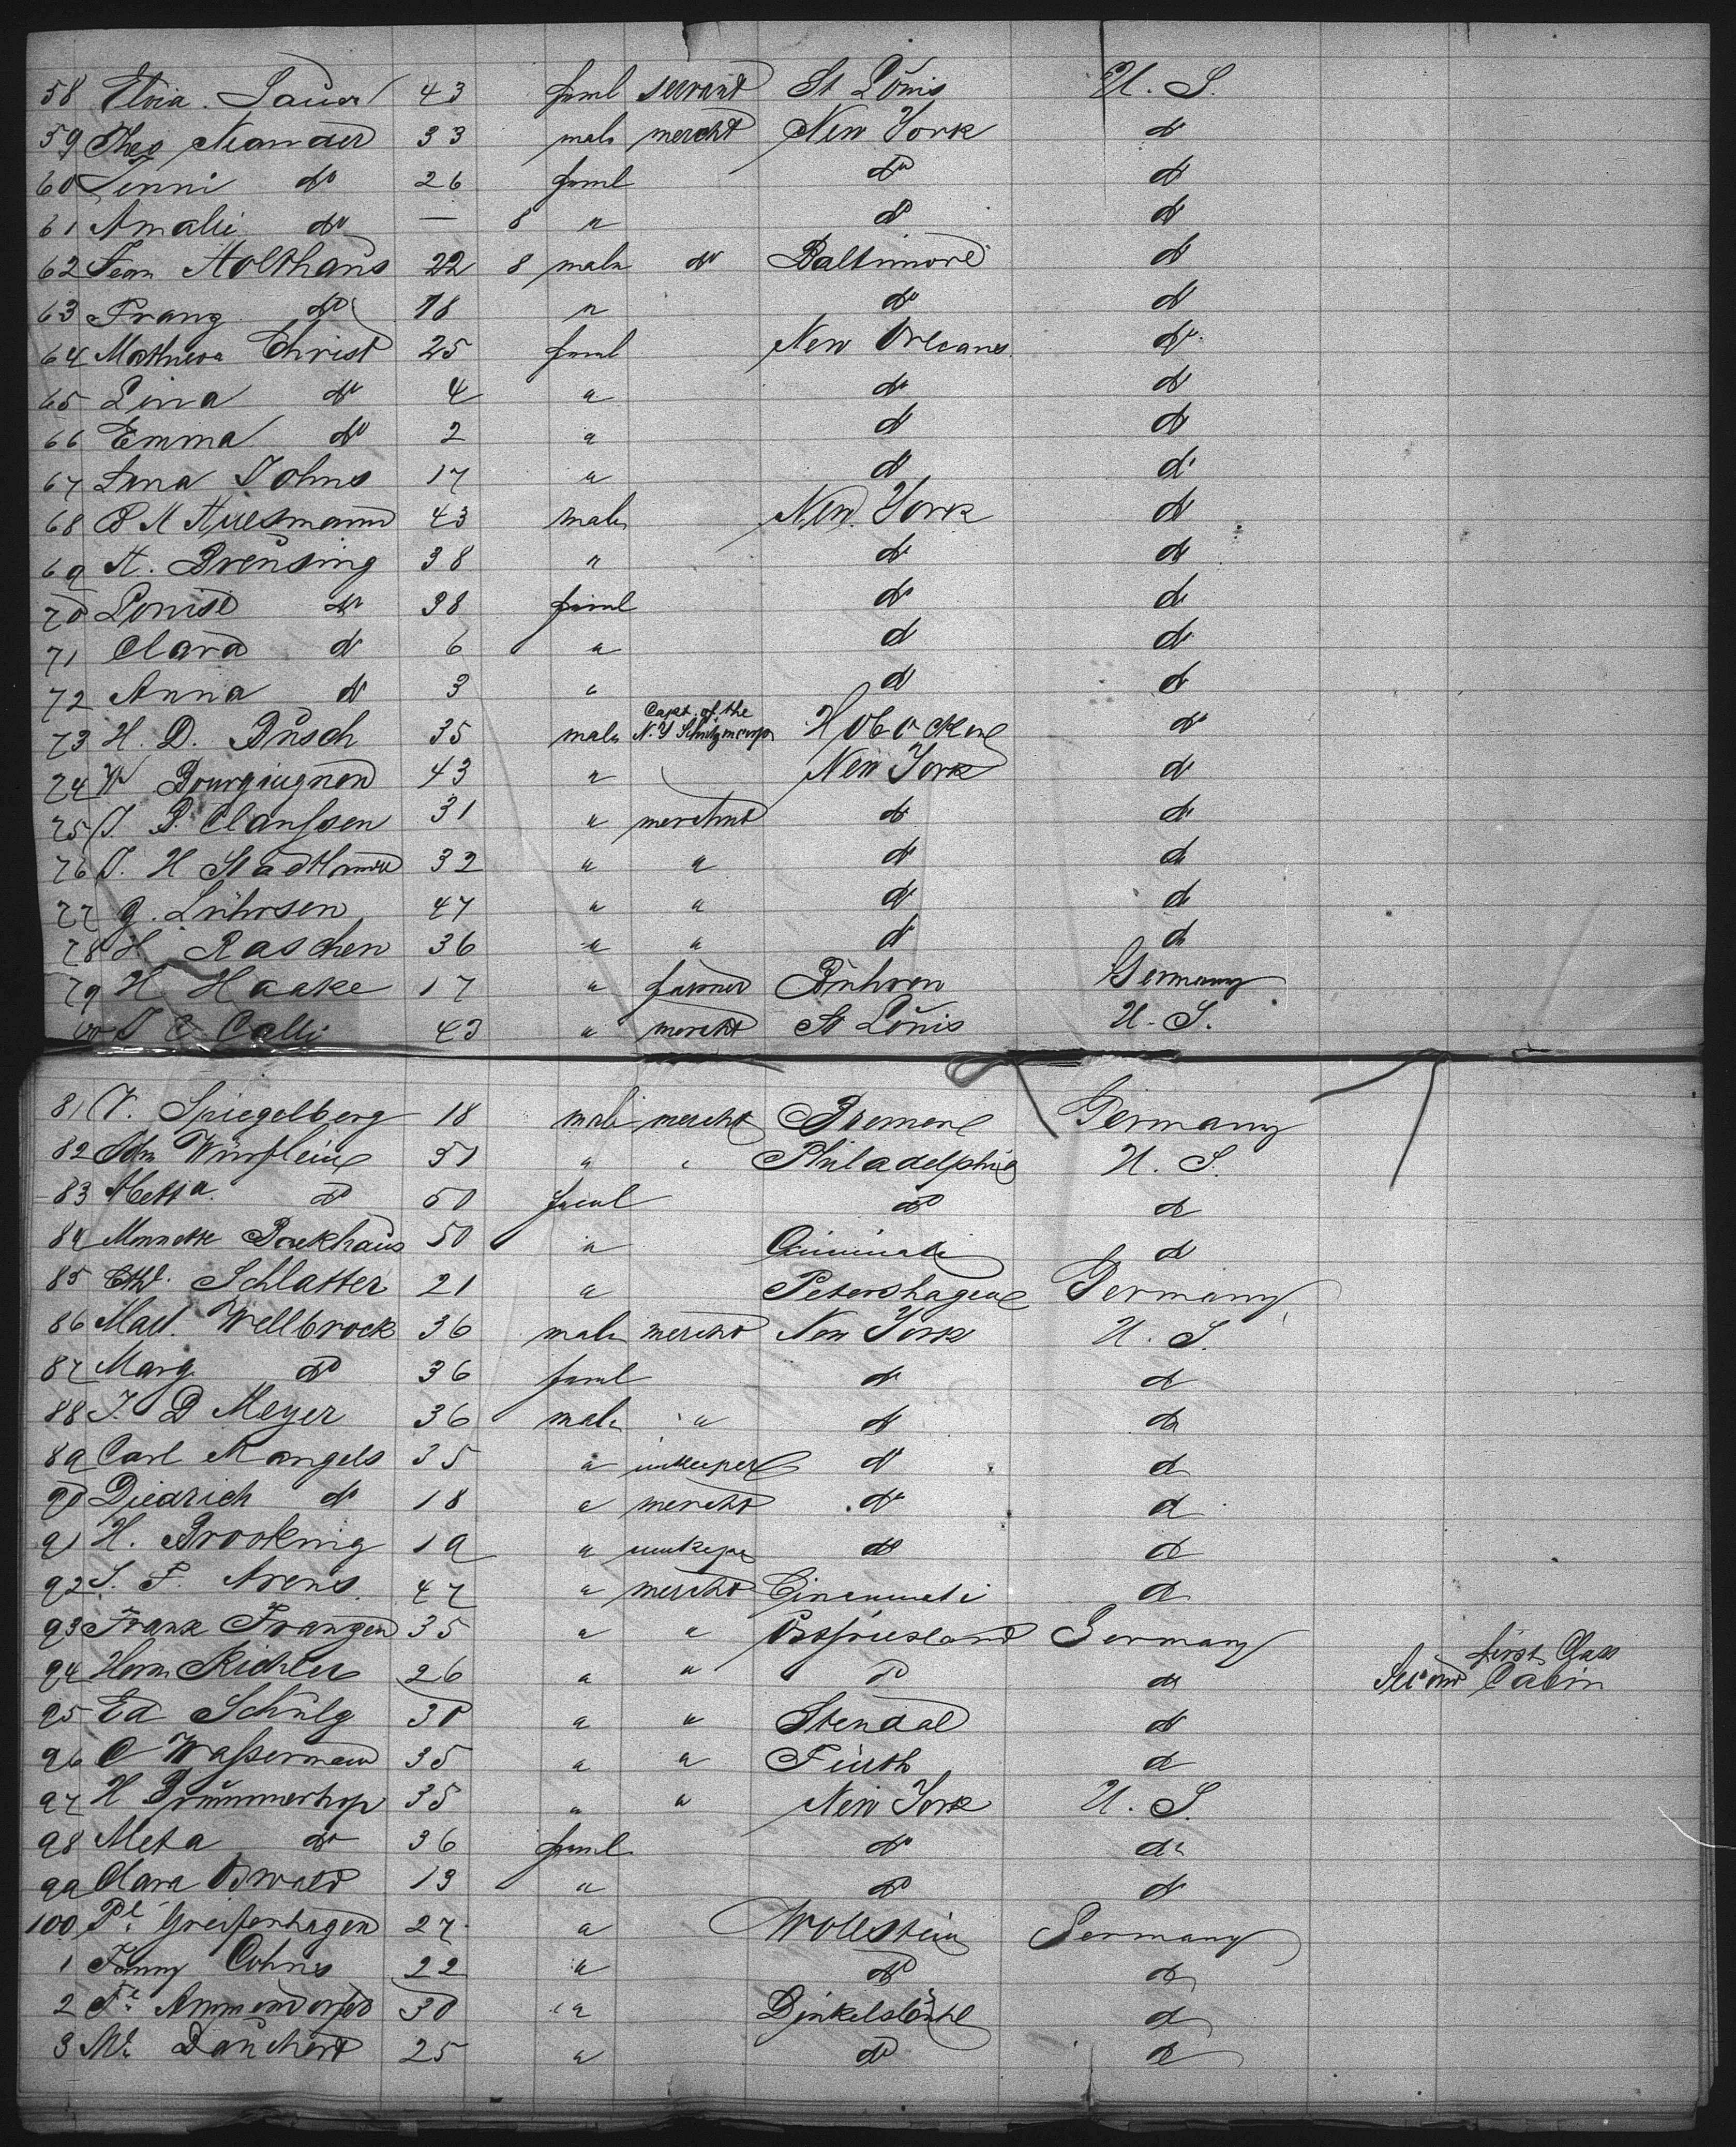 58 Sauer 43 feml servant St Louis U. S.
59 Theo Neander 33 male mercht New York do
60 Jenni do 26 feml do do
61 Amalie do — 8 " do do
62 Jean Holthaus 22 8 male do Baltimore do
63 Franz do 18 " do do
64 Christ 25 feml New Orleans do
65 Lina do 4 " do do
66 Emma do 2 " do do
67 Lena Johns 17 " do do
68 B H Huesmann 43 male New York do
69 H. Breusing 38 " do do
70 Louise do 38 feml do do
71 Clara do 6 " do do
72 Anna do 3 " do do
73 H. D. Busch 35 male Capt. of the N. Y Schützencorps Hobocken do
74 W Bourguignon 43 " New York do
75 J. P. Clanssen 31 " merchnt do do
76 J. H 32 " " do do
77 G. Lührsen 47 " " do do
78 H Raschen 36 " " do do
79 H Haake 17 " farmer Bühren Germany
80 J C Calli 43 " mercht St Louis U. S.
81 V. Spiegelberg 18 male mercht Bremen Germany
82 Würflein 51 " " Philadelphia U. S.
83 Metta do 50 feml do do
84 Backhaus 50 " Cincinnati do
85 Schlatter 21 " Petershagen Germany
86 Wellbrock 36 male mercht New York U. S.
87 Marg do 36 feml do do
88 J. D Meyer 36 male " do do
89 Carl Mangels 35 " innkeeper do do
90 Diedrich do 18 " mercht do do
91 H. Brookmig 19 " do do
92 J. F. Arens 47 " mercht Cincinnati do
93 Frank Franzen 35 " " Ostfriesland Germany
94 Herm Richter 26 " " do do first Class Second Cabin
95 Ed Schulz 30 " " Stendal do
96 C Wassermann 35 " " Fürth do
97 H Brümmerhop 35 " " New York U. S.
98 Meta do 36 feml do do
99 Clara Oswald 13 " do do
100 Greifenhagen 27 " Wollstein Germany
1 Fanny Cohns 22 " do do
2 30 " Dinkelsbühl do
3 25 " do do